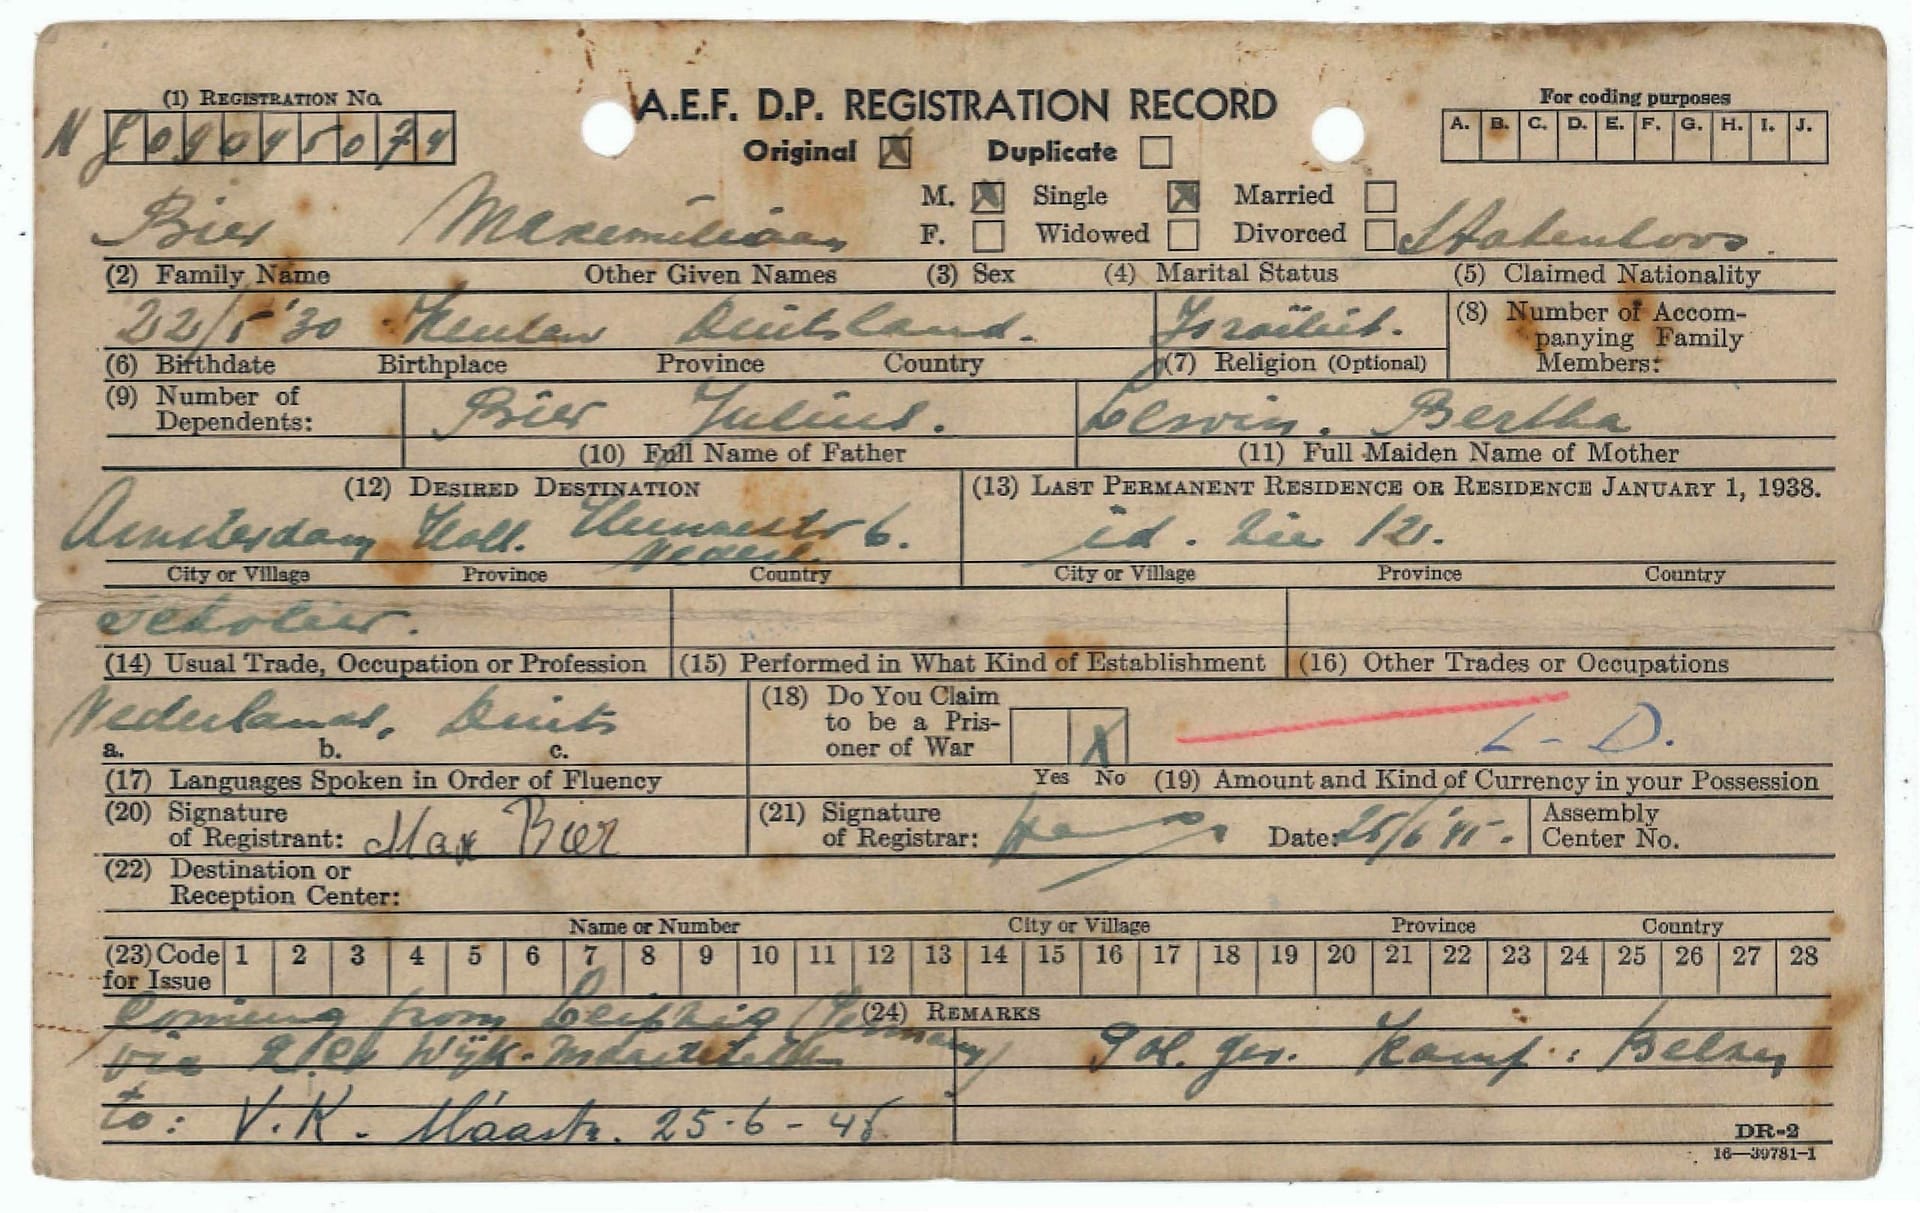 (1) REGISTRATION No.
A.E.F. D.P. REGISTRATION RECORD
For coding purposes
A. B. C. D. E. F. G. H. I. J.
Original Duplicate
M. Single Married
Bier Maximiliaan F. Widowed Divorced Statenloos.
(2) Family Name Other Given Names (3) Sex (4) Marital Status (5) Claimed Nationality
22/5 '30 Duitsland. Israëliet.
(8) Number of Accompanying Family Members:
(6) Birthdate Birthplace Province Country (7) Religion (Optional)
(9) Number of Dependents: Bier Julius. Bertha
(10) Full Name of Father (11) Full Maiden Name of Mother
(12) DESIRED DESTINATION (13) LAST PERMANENT RESIDENCE OR RESIDENCE JANUARY 1, 1938.
Amsterdam Holl. 6. id. zie 12.
Nederl.
City or Village Province Country City or Village Province Country
Scholier.
(14) Usual Trade, Occupation or Profession (15) Performed in What Kind of Establishment (16) Other Trades or Occupations
Nederlands, Duits
a. b. c.
(18) Do You Claim to be a Prisoner of War X L - D.
(17) Languages Spoken in Order of Fluency Yes No (19) Amount and Kind of Currency in your Possession
(20) Signature of Registrant: Max Bier (21) Signature of Registrar: Date: 25/6 '45. Assembly Center No.
(22) Destination or Reception Center:
Name or Number City or Village Province Country
(23) Code for Issue 1 2 3 4 5 6 7 8 9 10 11 12 13 14 15 16 17 18 19 20 21 22 23 24 25 26 27 28
(24) REMARKS
Coming from Leipzig (Germany)
via Wijk-Maastricht Pol. gev. Kamp: Belsen
to: V.K. Maastr. 25-6-45
DR-2
16—39781-1